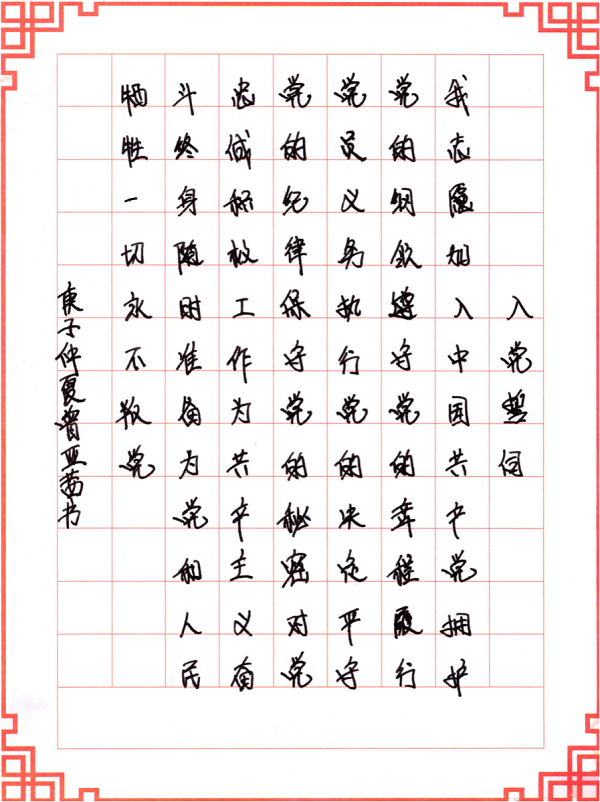 入党誓词
我志愿加入中国共产党拥护
党的纲领遵守党的章程履行
党员义务执行党的决定严守
党的纪律保守党的秘密对党
忠诚积极工作为共产主义奋
斗终身随时准备为党和人民
牺牲一切永不叛党
庚子仲夏曾亚茜书